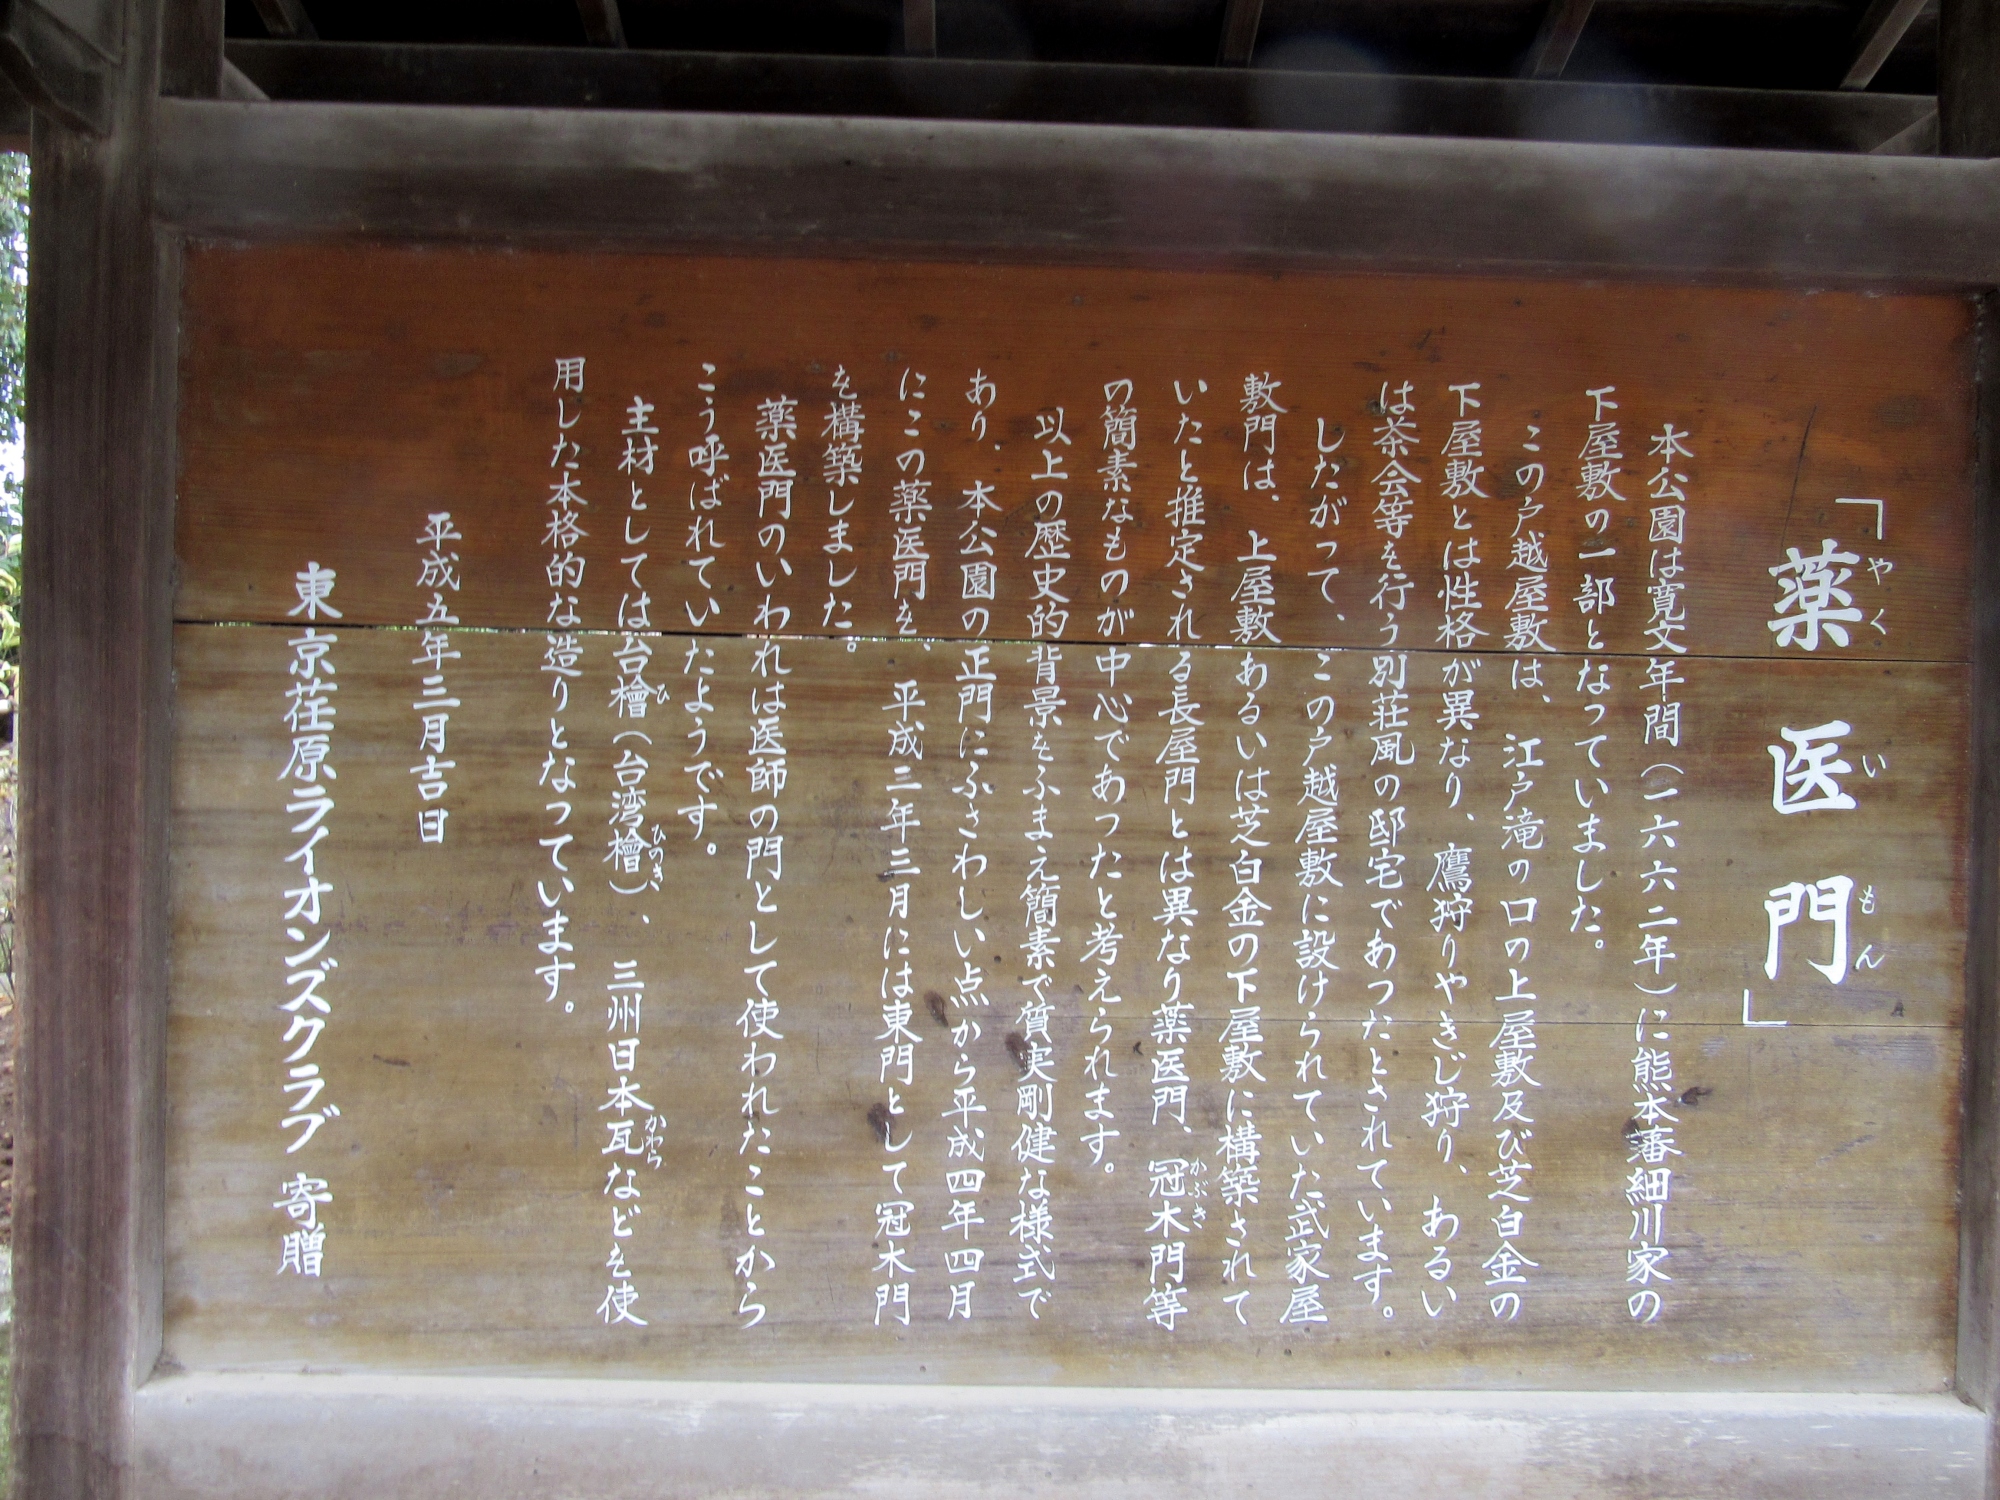 「薬医門」
本公園は寛文年間（一六六二年）に熊本藩細川家の
下屋敷の一部となっていました。
この戸越屋敷は、江戸滝の口の上屋敷及び芝白金の
下屋敷とは性格が異なり、鷹狩りやきじ狩り、あるい
は茶会等を行う別荘風の邸宅であったとされています。
したがって、この戸越屋敷に設けられていた武家屋
敷門は、上屋敷あるいは芝白金の下屋敷に構築されて
いたと推定される長屋門とは異なり薬医門、冠木門等
の簡素なものが中心であったと考えられます。
以上の歴史的背景をふまえ簡素で質実剛健な様式で
あり、本公園の正門にふさわしい点から平成四年四月
にこの薬医門を、平成三年三月には東門として冠木門
を構築しました。
薬医門のいわれは医師の門として使われたことから
こう呼ばれていたようです。
主材としては台檜（台湾檜）、三州日本瓦などを使
用した本格的な造りとなっています。
平成五年三月吉日
東京荏原ライオンズクラブ 寄贈